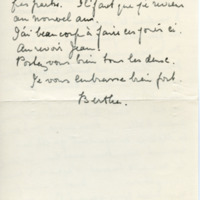 très prêtre. Il faut que je revienne
au nouvel an.
J'ai beaucoup à faire ces jours ci.
Au revoir Jean!
Portez vous bien tous les deux.
Je vous embrasse bien fort.
Berthe.